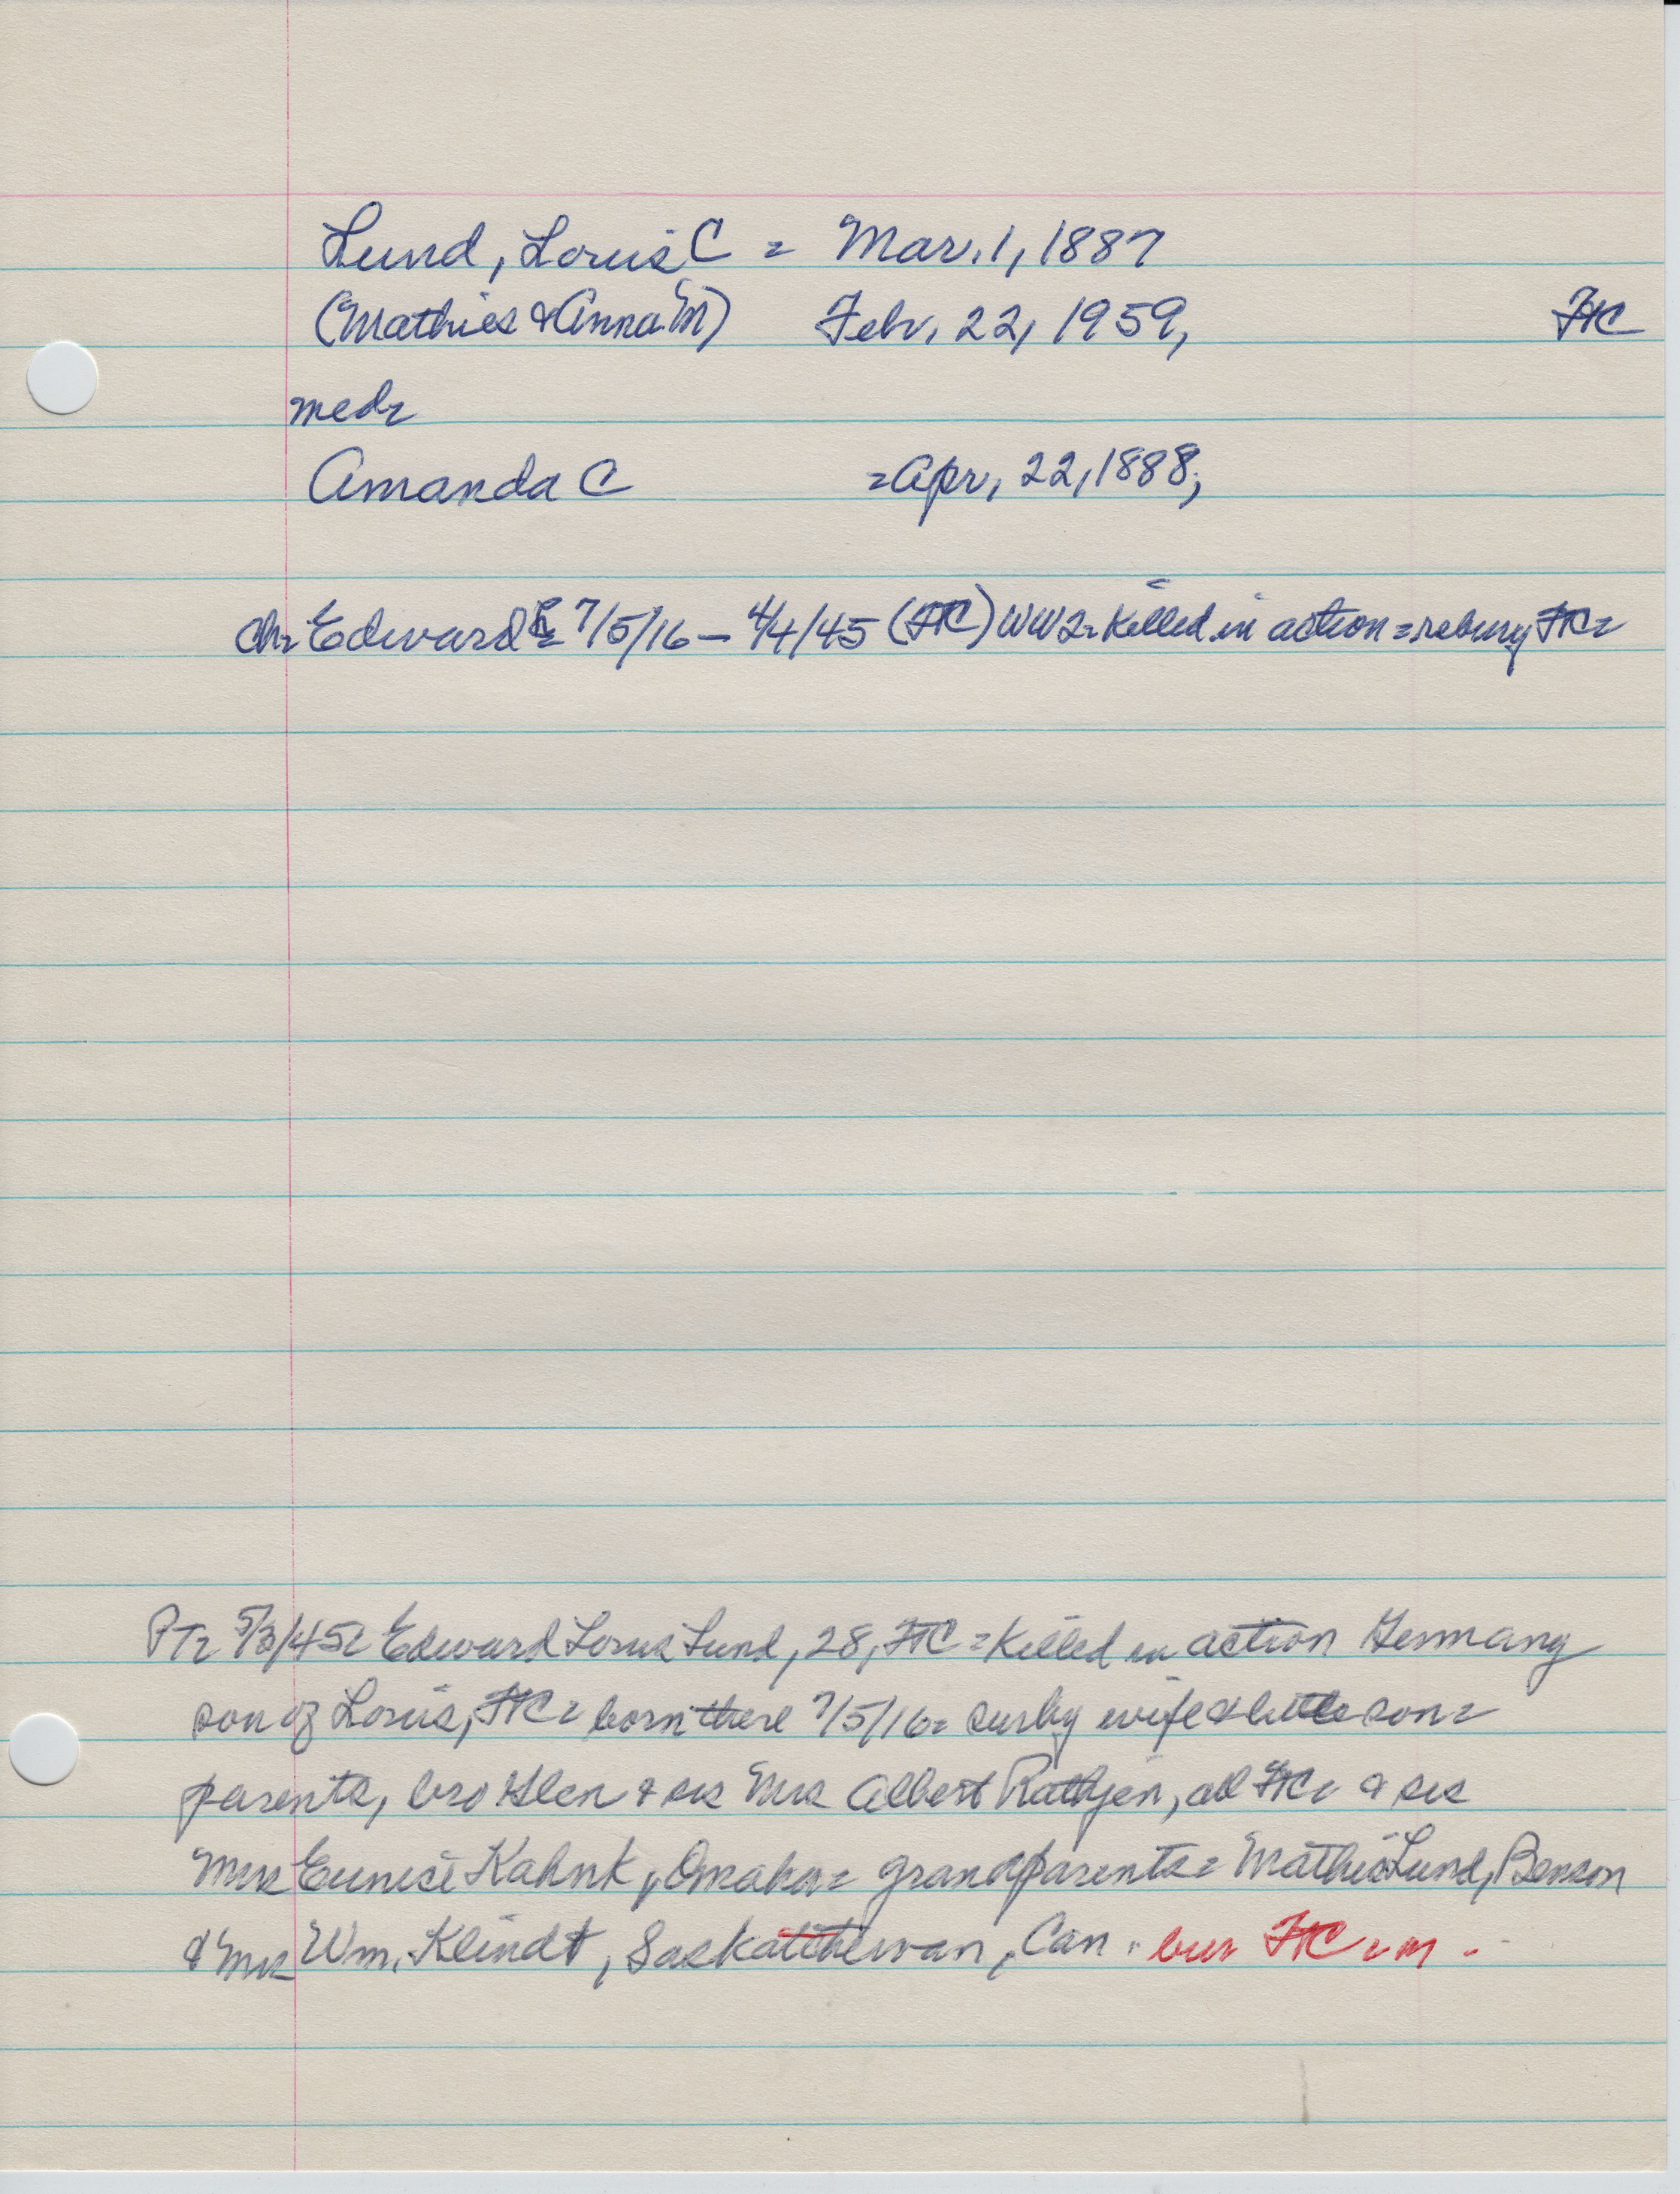 Lund, Louis C = Mar. 1, 1887
(Mathies & Anna M) Febr, 22, 1959, FtC
med=
Amanda C = Apr, 22, 1888,
ch= Edward L= 7/5/16 – 4/4/45 (FtC) WW2= Killed in action = rebury FtC=
PT= 5/3/45= Edward Louis Lund, 28, FtC = Killed in action Germany
son of Louis, FtC = born there 7/5/16= surby wife & little son =
parents, bro Glen & sis Mrs Albert Rathjen, all FtC, & sis
Mrs Eunice Kahnk, Omaha= grandparents= Mathis Lund, Benson
& Mrs Wm, Klindt, Saskatchewan, Can. bur FtC = m -